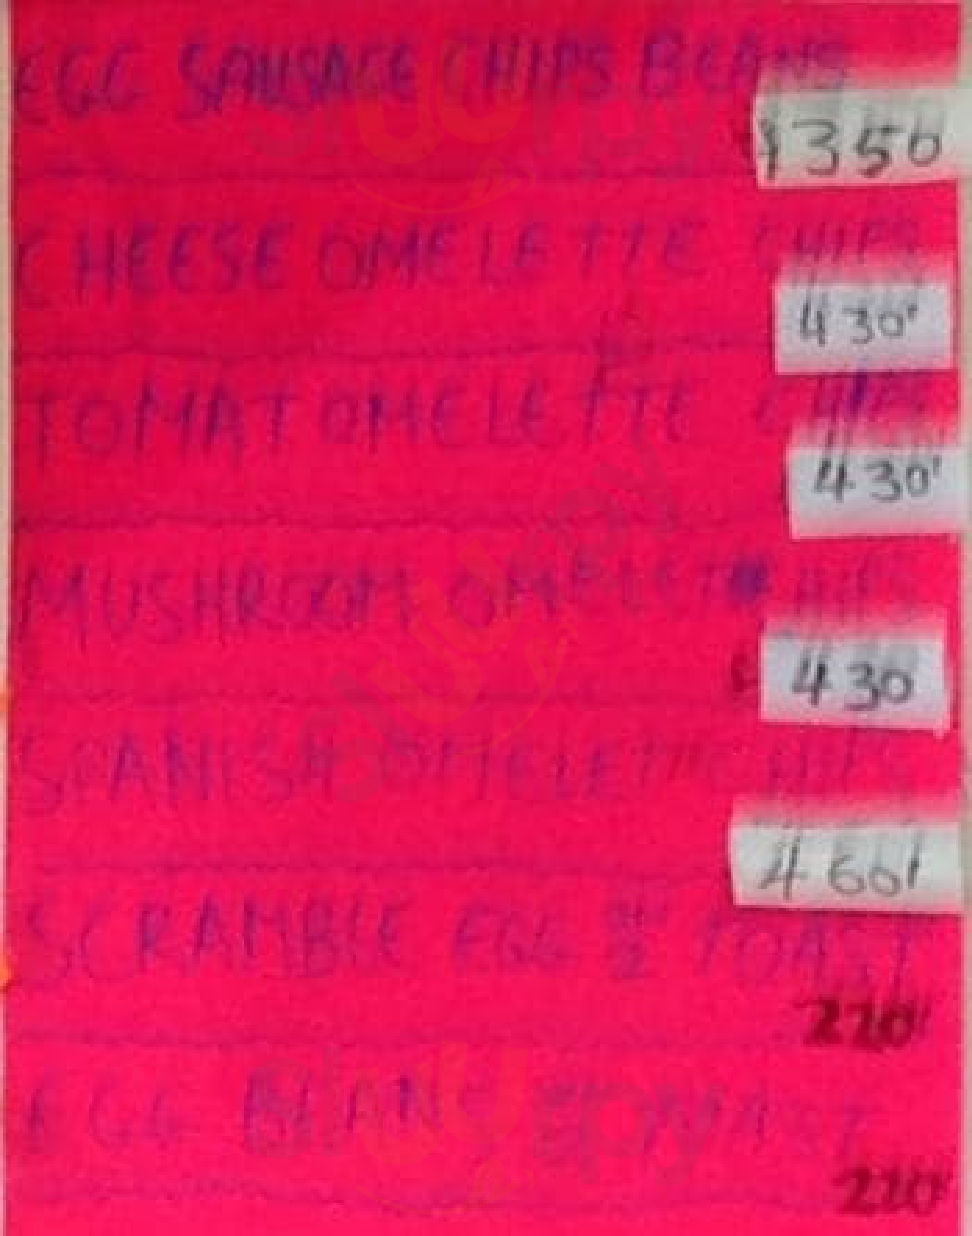 EGG SAUSAGE CHIPS BEANS
350
CHEESE OMELETTE CHIPS
430
TOMAT OMELETTE CHIPS
430
MUSHROOM OMELET CHIPS
430
SPANISH OMELETTE CHIPS
460
SCRAMBLE EGG TOAST
220
EGG BEANS
220